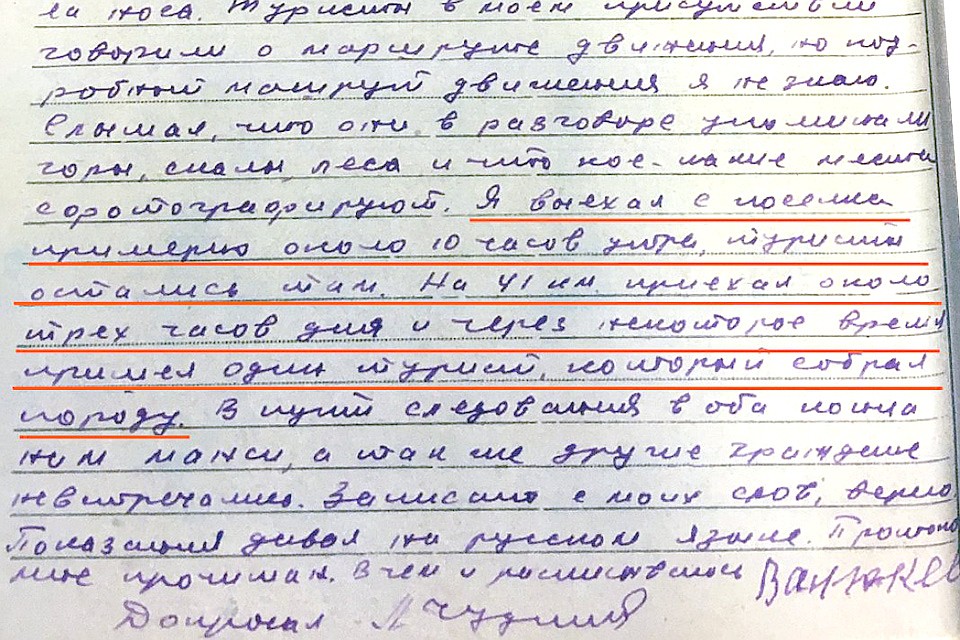 ва носа. Туристы в моем присутствии
говорили о маршруте движения, но под-
робный маршрут движения я не знаю.
Слышал, что они в разговоре упоминали
горы, скалы, леса и что кое-какие места
сфотографируют. Я выехал с поселка
примерно около 10 часов утра, туристы
остались там. На 41 км. приехал около
трех часов дня и через некоторое время
пришел один турист, который собрал
породу. В пути следования в оба конца
ним манси, а так же другие граждане
не встречались. Записано с моих слов, верно.
Показания давал на русском языке. Протокол
мне прочитан. В чем и расписываюсь
Допросил Чудинов